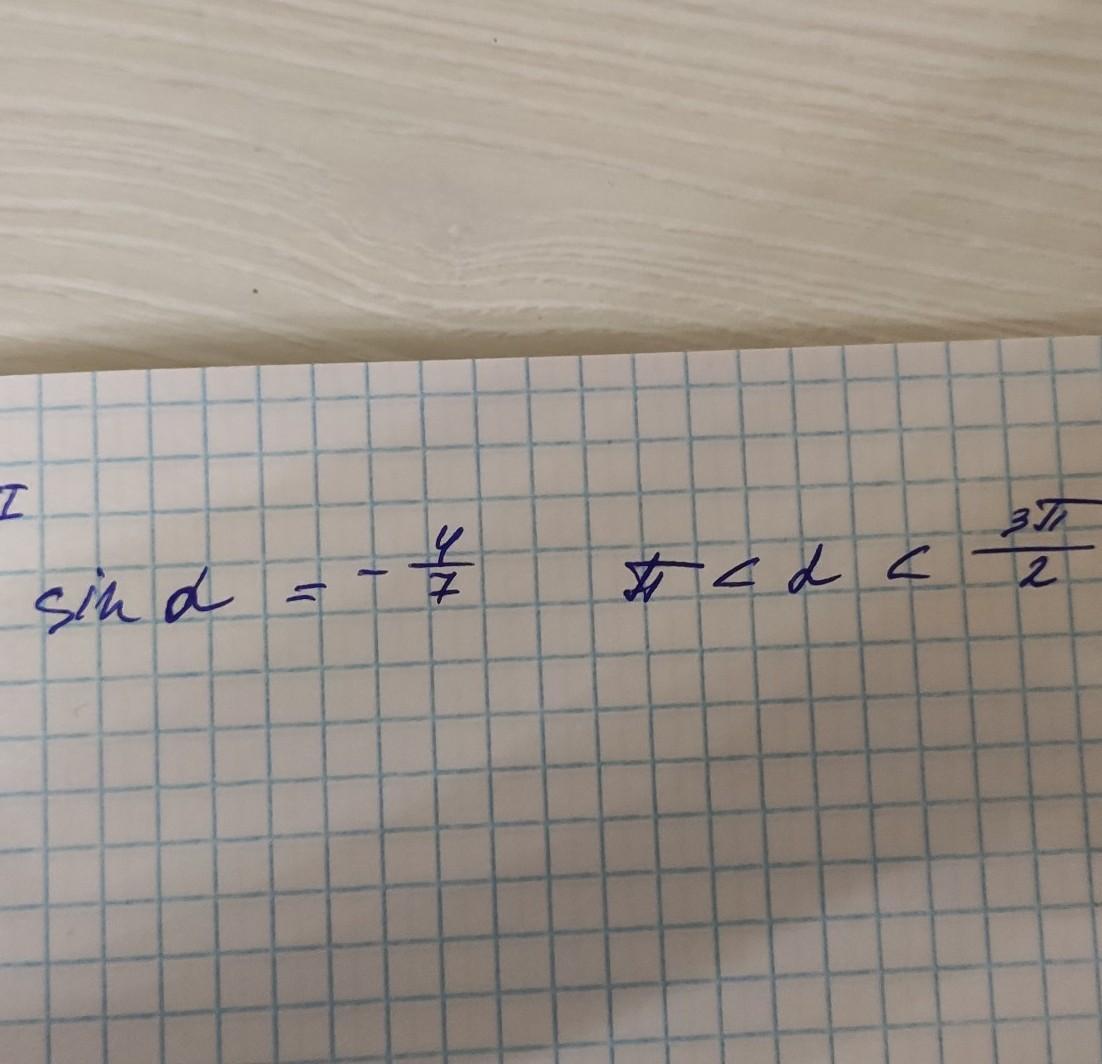 I
sin α = - 4/7 π < α < 3π/2